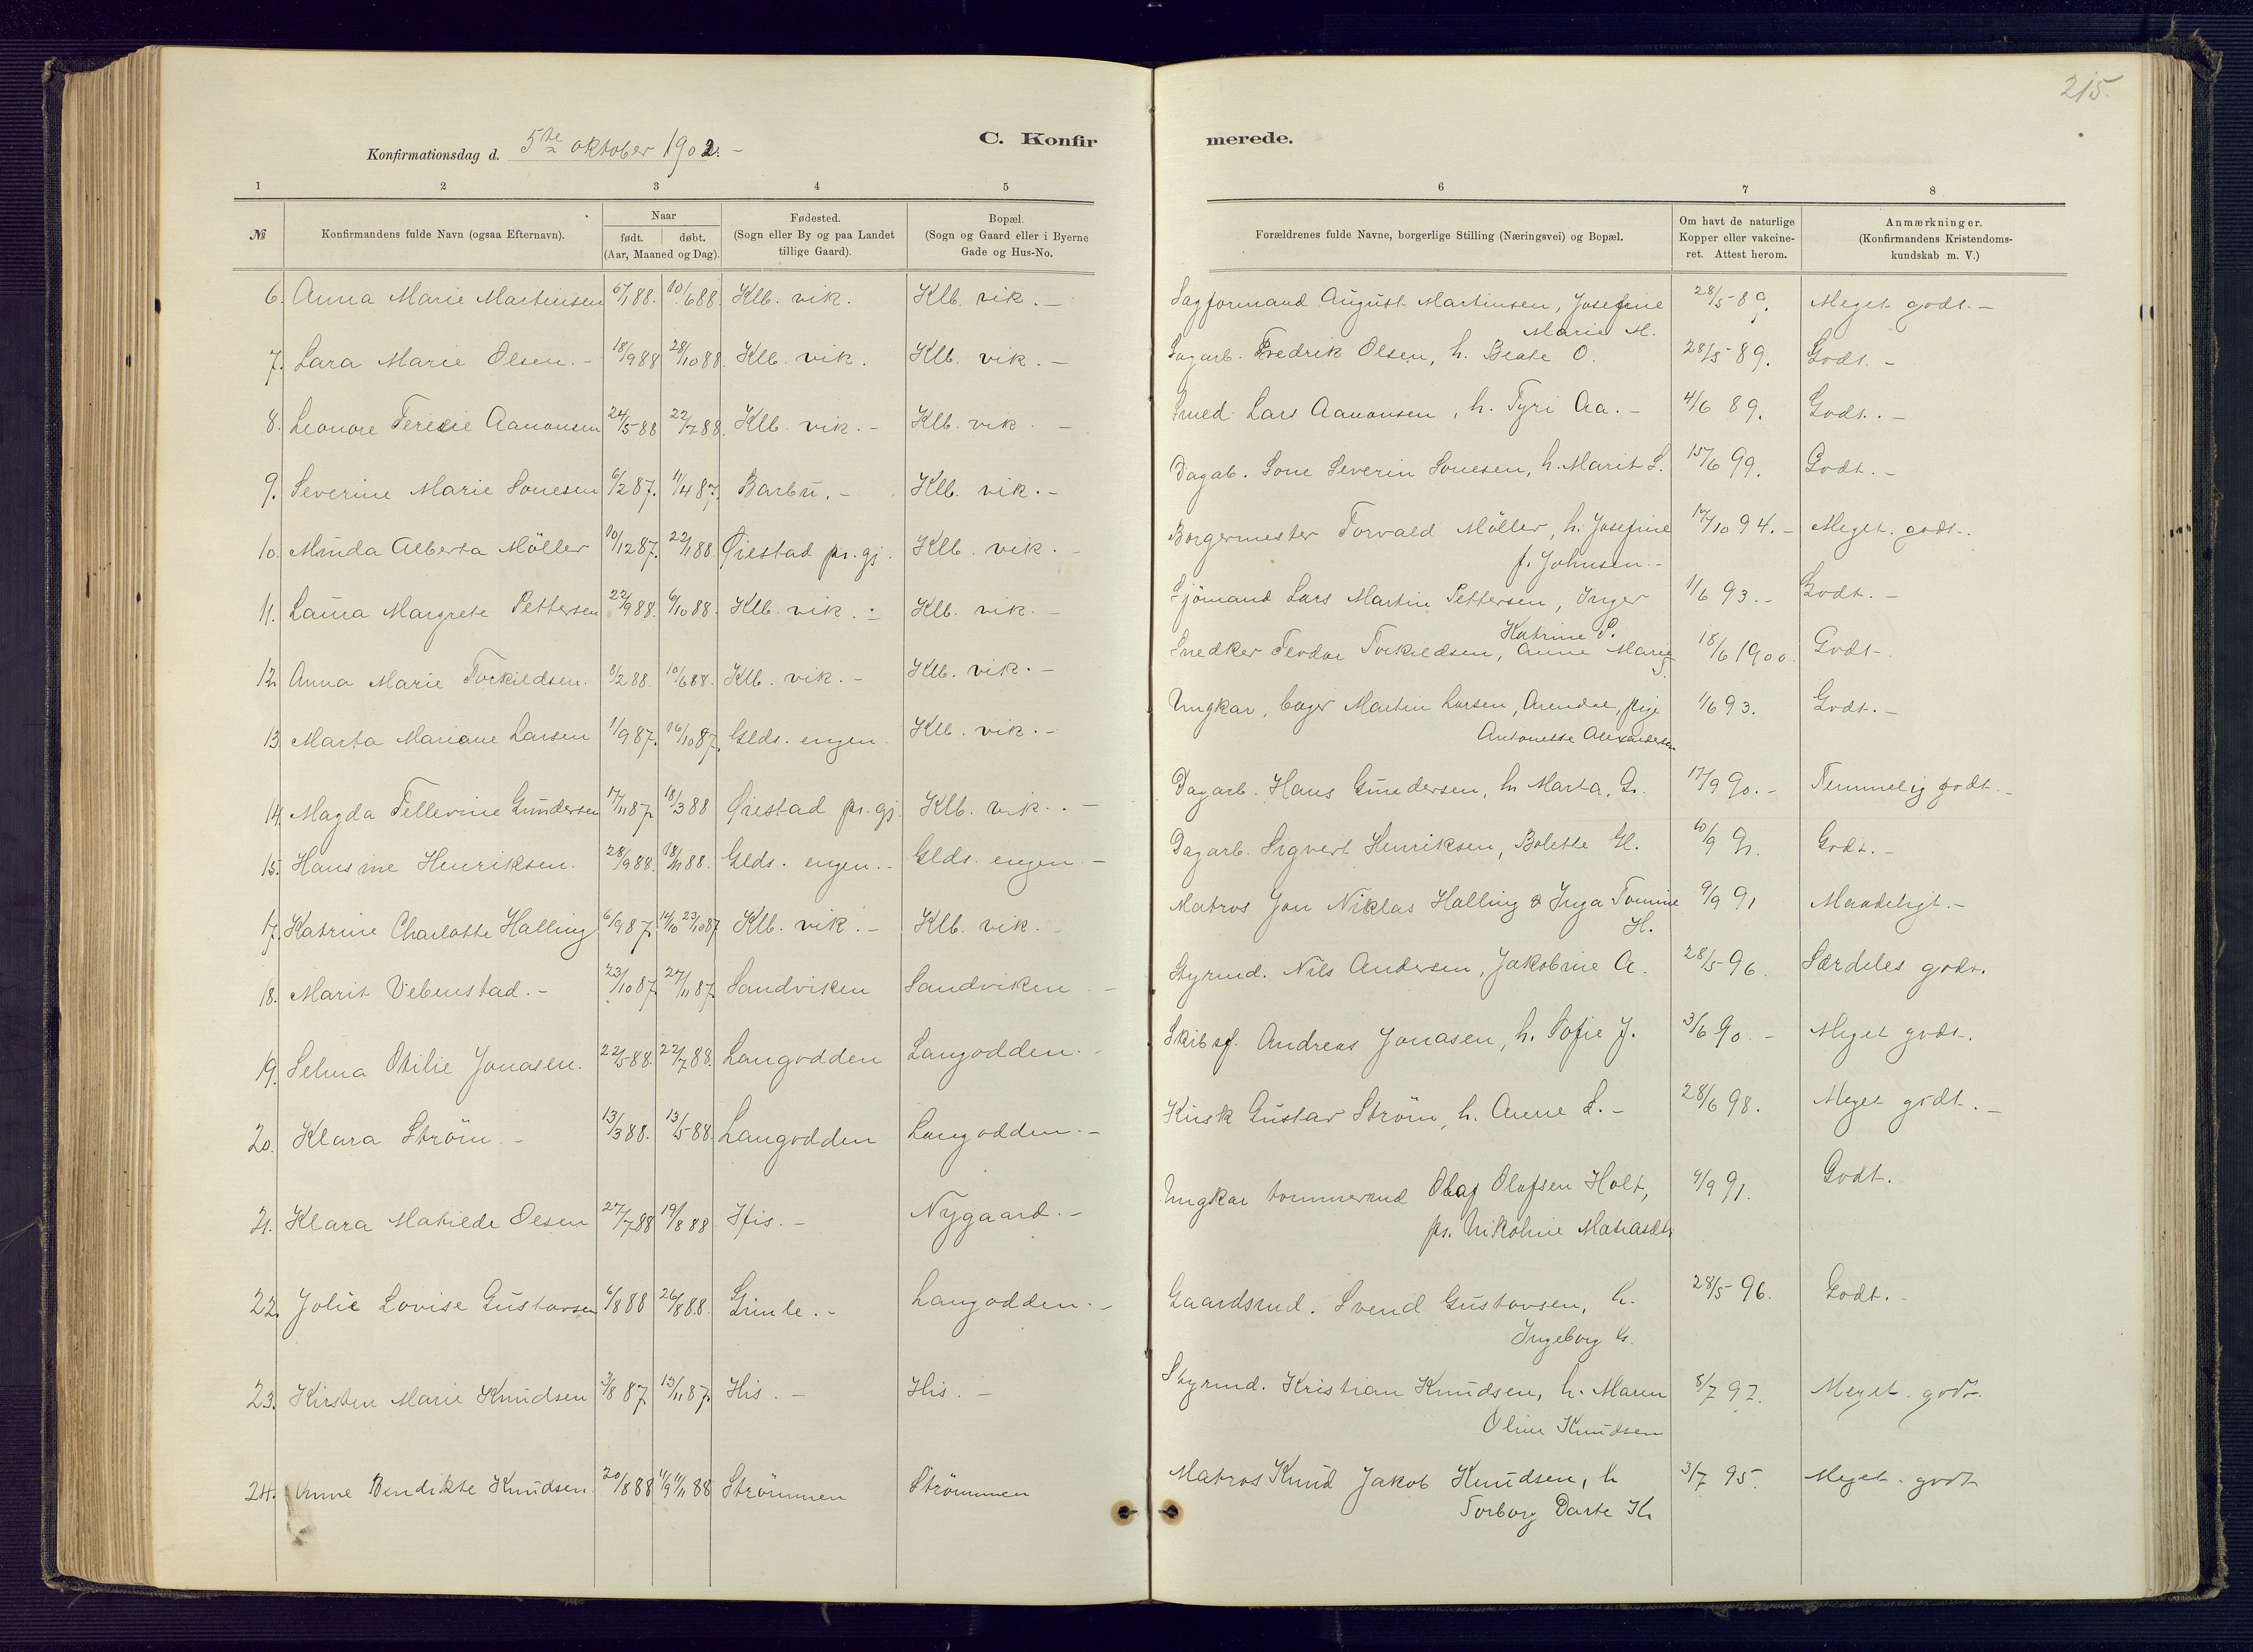 215.
C. Konfirmerede.
Konfirmationsdag d. 5te oktober 1902. -
1 2 3 4 5 6 7 8
№ Konfirmandens fulde Navn (ogsaa Efternavn). Naar født. døbt. (Aar, Maaned og Dag). Fødested. (Sogn eller By og paa Landet tillige Gaard). Bopæl. (Sogn og Gaard eller i Byerne Gade og Hus-No. Forældrenes fulde Navne, borgerlige Stilling (Næringsvei) og Bopæl. Om havt de naturlige Kopper eller vakcineret. Attest herom. Anmærkninger. (Konfirmandens Kristendomskundskab m. V.)
6. Anna Marie Martinsen 88. 10/6 88. Klb. vik. Klb. vik. - Sagformand August Martinsen, Josefine 28/5 89. Meget godt. -
Marie M.
7. Lara Marie Olsen. - 18/9 88 28/10 88. Klb. vik. Klb. vik. - Sagarb. Fredrik Olsen, h. Beate O. 28/5 89. Godt. -
8. Leonore Aanonsen 24/5 88 22/7 88. Klb. vik. - Klb. vik. - Smed Lars Aanonsen, h. Tyri Aa. - 4/6 89. Godt. -
9. Severine Marie Sonesen 6/2 87. 11/4 87. Barbu. - Klb. vik. - Dagab. Sone Severin Sonesen, h. Marit S. 15/6 99. Godt. -
10. Minda Alberta Möller 10/12 87. 22/1 88. Øiestad pr. gj. Klb. vik. - Borgermester Torvald Möller, h. Josefine 17/10 94. - Meget godt.
f. Johnsen -
11. Laura Margrete Pettersen 22/9 88. 6/10 88. Klb. vik. - Klb. vik. - Sjömand Lars Martin Pettersen, Inger 1/6 93. - Godt. -
Katrine P.
12. Anna Marie Torkildsen. 8/2 88. 10/6 88. Klb. vik. - Klb. vik. - Snedker Teodor Torkildsen, Anne Marie 18/6 1900. Godt.
T.
13. Marta Mariane Larsen 1/9 87. 16/10 87. Glds. engen. Klb. vik. - Ungkar, bager Martin Larsen, Arendal, pige 1/6 93. Godt. -
Antonette Alexandersen
14. Magda Tellevine Gundersen 17/11 87. 18/3 88 Øiestad pr. gj. Klb. vik. - Dagarb. Hans Gundersen, h. Marta G. 17/9 90. - Temmelig godt. -
15. Hansine Henriksen. 28/9 88. 18/11 88. Glds. engen. - Glds. engen - Dagarb. Sigvert Henriksen, Bolette H. 10/9 91. Godt. -
17. Katrine Charlotte Halling 6/9 87. 14/10 23/10 87 Klb. vik. - Klb. vik. - Matros Jon Niklas Halling & Inga Tomine 9/9 91 Maadeligt. -
H.
18. Marit Vebenstad. - 23/10 87. 27/11 87. Sandviken Sandviken - Styrmd. Nils Andersen, Jakobine A. 28/5 96. Særdeles godt.
19. Selma Otilie Jonasen. 22/5 88. 22/7 88. Langodden Langodden. - Skibsf. Andreas Jonasen, h. Sofie J. 3/6 90. - Meget godt.
20. Klara Ström. - 13/3 88. 13/5 88. Langodden Langodden. - Kusk Gustav Ström, h. Anne S. - 28/6 98. Meget godt. -
21. Klara Matilde Olsen 27/7 88 19/8 88 His. - Nygaard. - Ungkar tommermd Olaf Olafsen Holt, 9/9 91. Godt.
ps. Nikoline Matiasdtr
22. Jolie Lovise Gustavsen 6/8 88 26/8 88. Gimle. - Langodden. - Gaardsmd. Svend Gustavsen, h. 28/5 96. Godt. -
Ingeborg G.
23. Kirsten Marie Knudsen 3/8 87. 13/11 87. His. - His. - Styrmd. Kristian Knudsen, h. Maren 8/7 97. Meget godt.
Oline Knudsen
24. Anne Bendikte Knudsen 20/8 88 11/11 88 Strömmen Strömmen Matros Knud Jakob Knudsen, h 3/7 95. Meget godt
Torborg Dorte K.